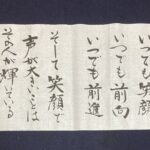 いつでも笑顔
いつでも前向
いつでも前進
そして笑顔で
声が大きいことは
その人が輝いている